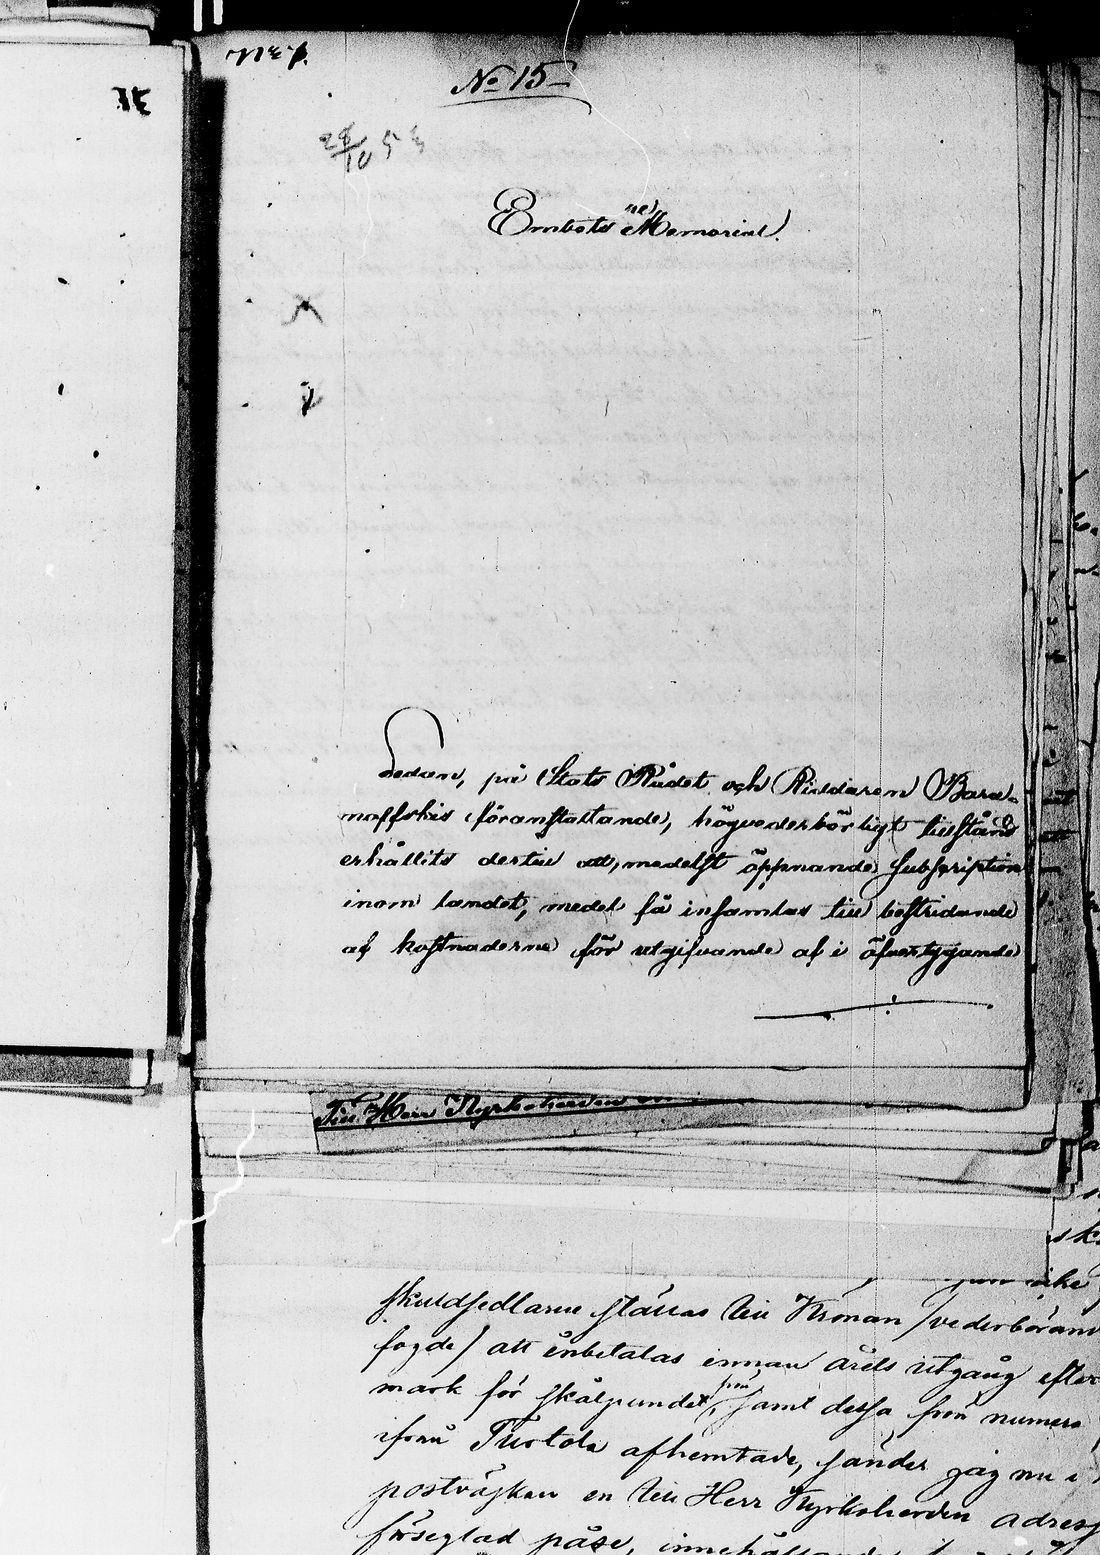 No 15
28/10 53
Embets Memorial.
Sedan, på Stats Rådet och Riddaren Bara-
noffskis föranstaltande, högvederbörligt tillstånd
erhållits dertill att, medelst öppnande subscription
inom landet, medel få insamlas till bestridande
af kostnaderne för utgifvande af i öfvertygande
Till Herr Kyrkoherden
icke
skuldsedlarne ställas till Kronan /vederböran
fogde/ att inbetalas innan årets utgång efter
mark för skålpundet, samt dessa frön numera
ifrån Tuotola afhemtade, sänder jag nu i
postväskan en till Herr Kyrkoherden adres
förseglad påse,